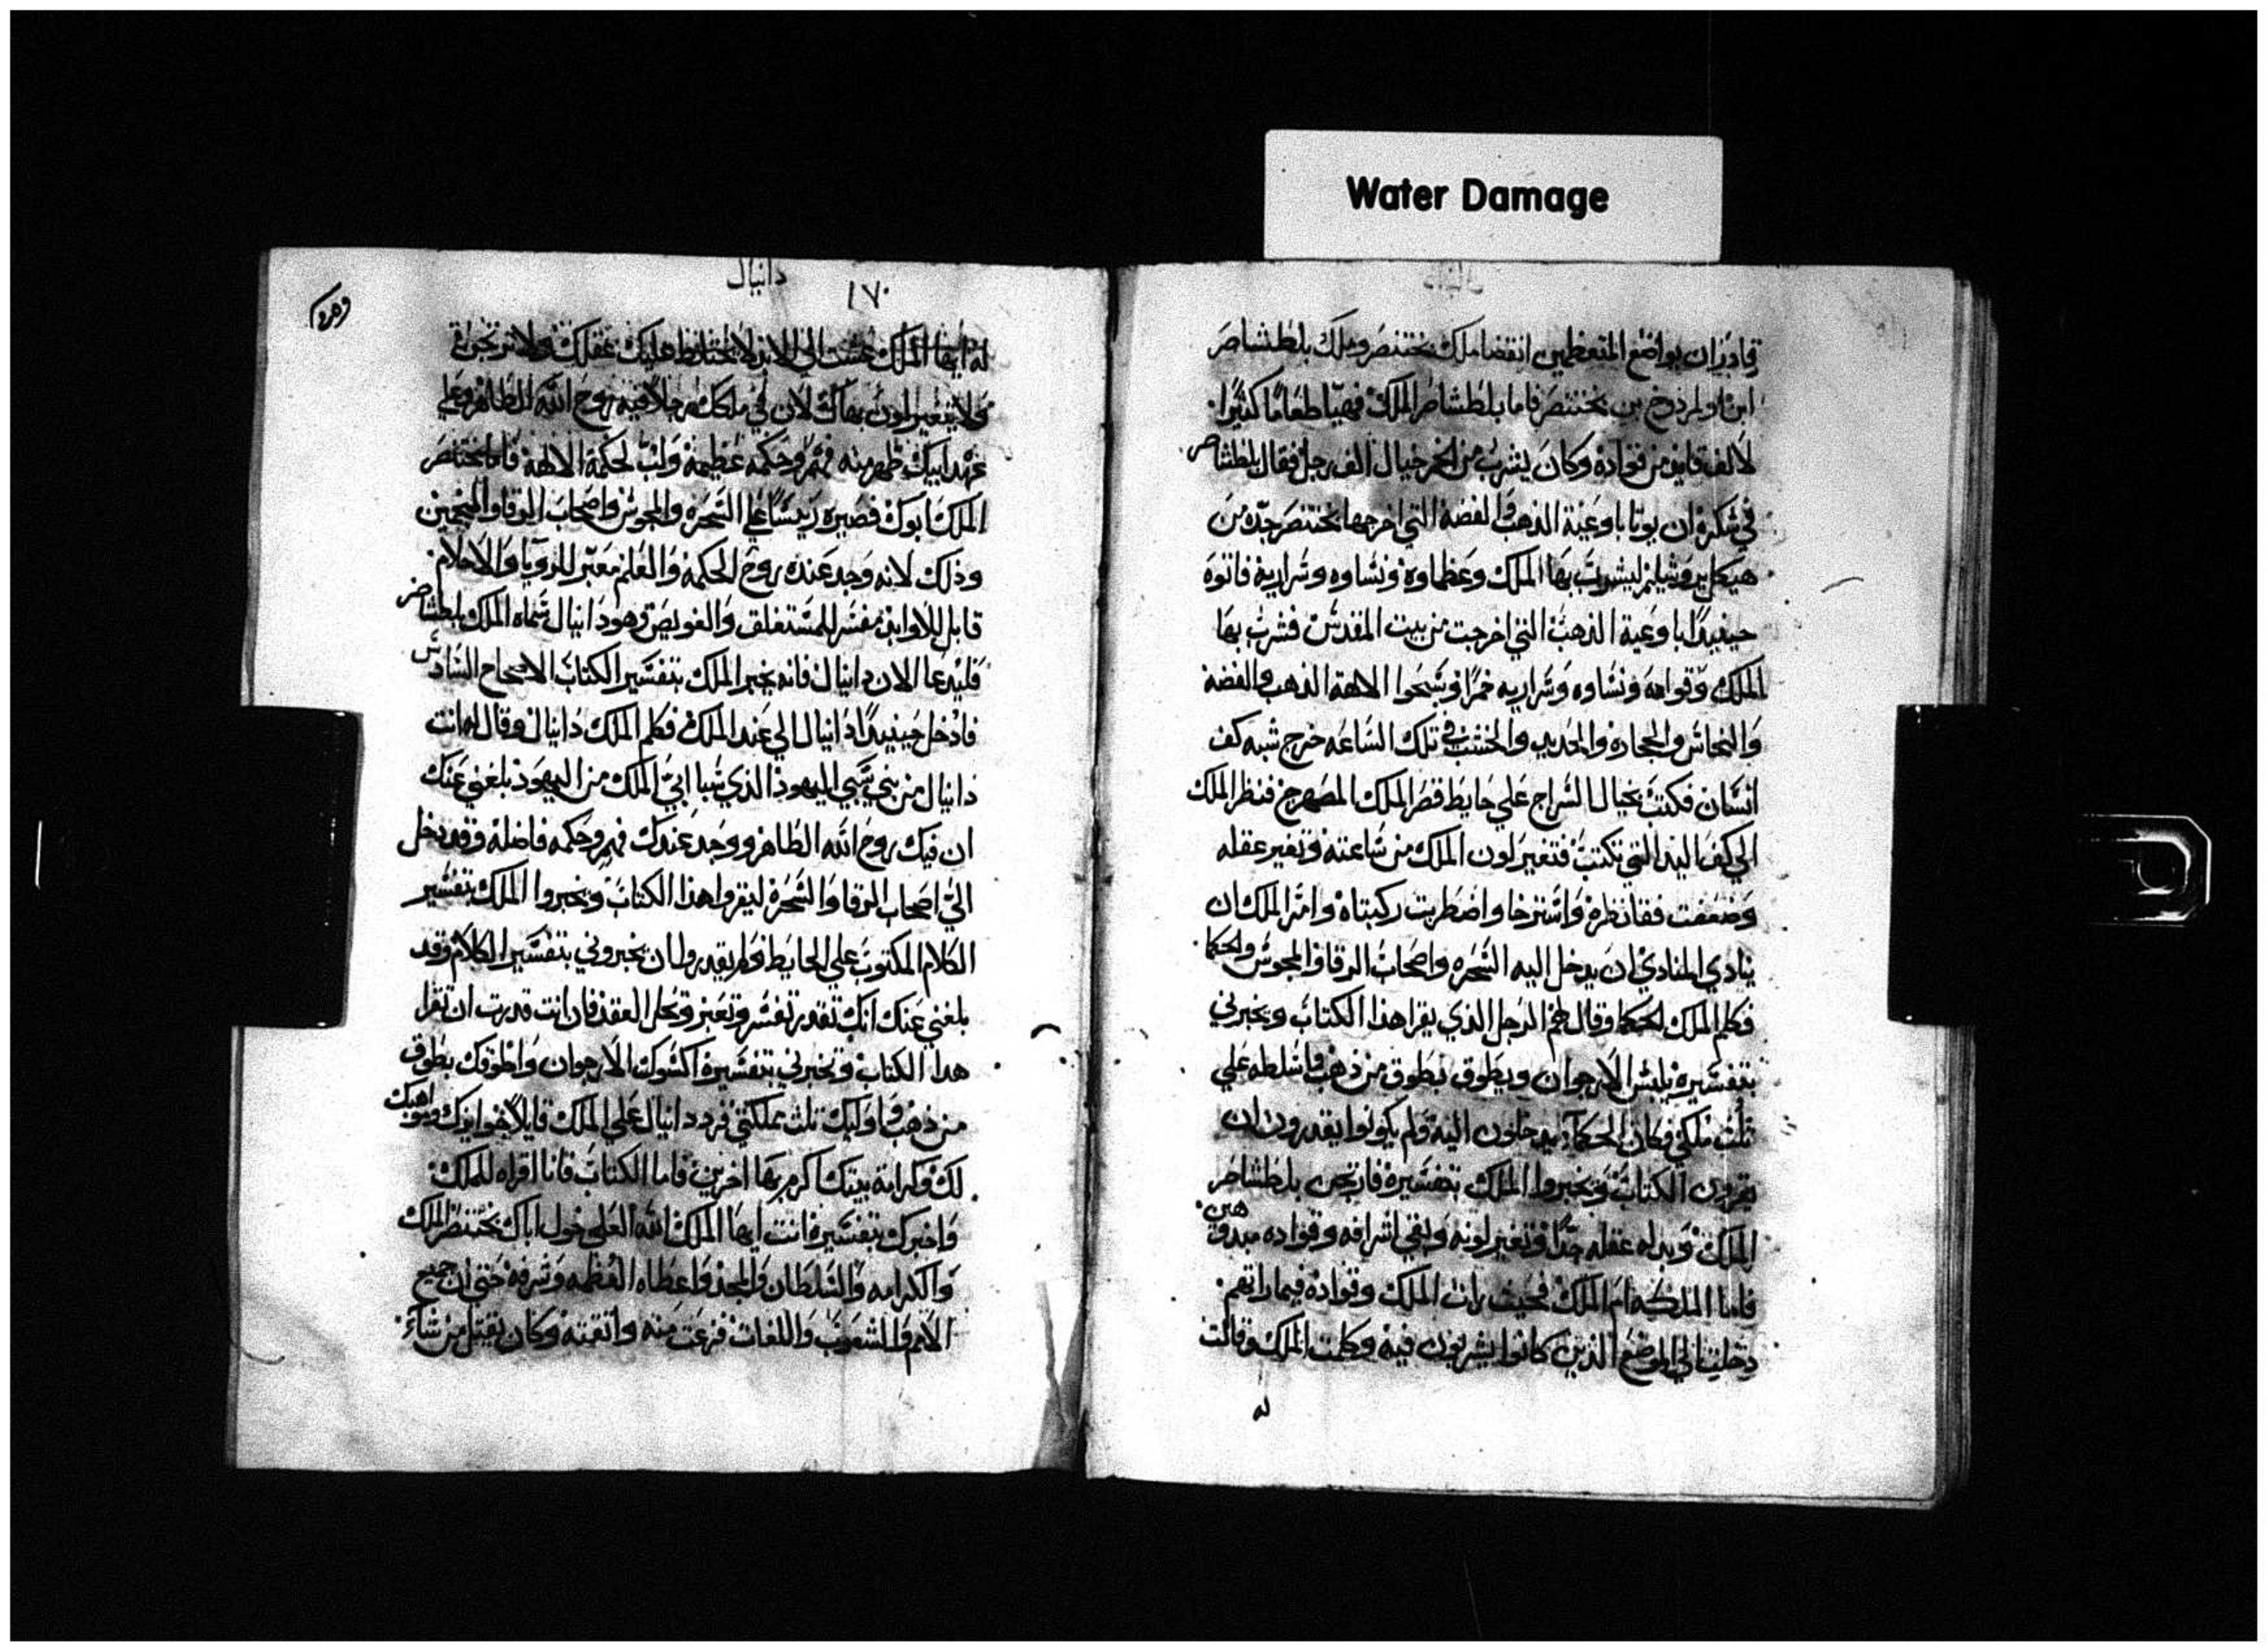 Water Damage
قادر ان يواضع المتعظمين انقضا ملك بختنصر وملك بلطشاصر
ابن اولمردوخ بن بختنصر فاما بلطشاصر الملك فهيا طعاما كثيرا
لالف قايد من قواده وكان يشرب من الخمر حيال الف رجل فقال بلطشاصر
في سكره ان يوتا باوعية الذهب والفضه التي اخرجها بختنصر جده من
هيكل يروشليم ليشرب بها الملك وعظماوه ونساوه وسراريه فاتوه
حينيدا باوعية الذهب التي اخرجت من بيت المقدس فشرب بها
الملك وقوامه ونساوه وسراريه خمرا وسبحوا الالهة الذهب والفضه
والنحاس والحجاره والحديد والخشب في تلك الساعه خرج شبه كف
انسان فكتب بحيال السراج علي حايط قصر الملك المصهرج فنظر الملك
الي كف اليد التي تكتب فتغير لون الملك من ساعته وتغير عقله
وضعفت فقار ظهره واسترخا واضطربت ركبتاه وامر الملك ان
ينادي المنادي ان يدخل اليه السحره واصحاب الرقا والمجوس والحكما
فكلم الملك الحكما وقال لهم الرجل الذي يقرا هذا الكتاب ويخبرني
بتفسيره يلبس الارجوان ويطوق بطوق من ذهب واسلطه علي
ثلث ملكي فكان الحكما يدخلون اليه ولم يكونوا يقدرون ان
يقرون الكتاب ويخبروا الملك بتفسيره فارتجى بلطشاصر
الملك عقله جدا وتغير لونه وبقي اشرافه وقواده مبدوقين
فاما الملكه ام الملك فحيث رات الملك وقواده فيما راتهم
دخلت الي الموضع الذين كانوا يشربون فيه وكلمت الملك وقالت
له
دانيال
١٧٠
له ايها الملك عشت الي الابد لا يختلط عليك عقلك ولا ترتجى
ولا يتغير لون بهاك لان في ملكك رجلا فيه روح الله الطاهر وعلي
عهد ابيك ظهر منه فهم وحكمه عظيمة ولب لحكمة الالهة فاما بختنصر
الملك ابوك فصيره ريسا علي السحره والمجوس واصحاب الرقا والمنجمين
وذلك لانه وجد عنده روح الحكمه والعلم معبر للرويا والاحلام
قابل للاوابد مفسر للمستغلق والعويص وهو دانيال سماه الملك بلطشاصر
فليدعا الان دانيال فانه يخبر الملك بتفسير الكتاب الاصحاح السادس
فادخل حينيدا دانيال الي عند الملك فكلم الملك دانيال وقال له انت
دانيال من بني سبي اليهود الذي سبا ابي الملك من اليهود بلغني عنك
ان فيك روح الله الطاهر ووجد عندك فهم وحكمه فاضله وقد دخل
الي اصحاب الرقا والسحره ليقروا هذا الكتاب ويخبروا الملك بتفسير
الكلام المكتوب علي الحايط فلم يقدروا ان يخبروني بتفسير الكلام وقد
بلغني عنك انك تقدر تفسر وتعبر وتحل العقد فان انت قدرت ان تقرا
هدا الكتاب وتخبرني بتفسيره اكسوك الارجوان واطوقك بطوق
من ذهب واوليك ثلث مملكتي فرد دانيال علي الملك قايلا جوايزك ومواهبك
لك وكرامة بيتك اكرم بها اخرين فاما الكتاب فانا اقراه للملك
واخبرك بتفسيره انت ايها الملك الله العلي خول اباك بختنصر الملك
والكرامه والسلطان والمجد واعطاه العظمه وشرفه حتي ان جميع
الامم والشعوب واللغات فزعت منه واتقته وكان يقتل من شاء